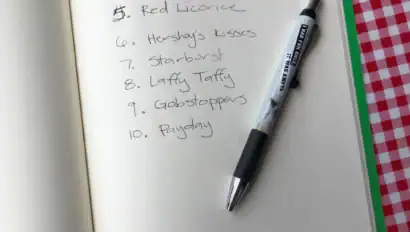 5. Red Licorice
6. Hershey's Kisses
7. Starburst
8. Laffy Taffy
9. Gobstoppers
10. Payday